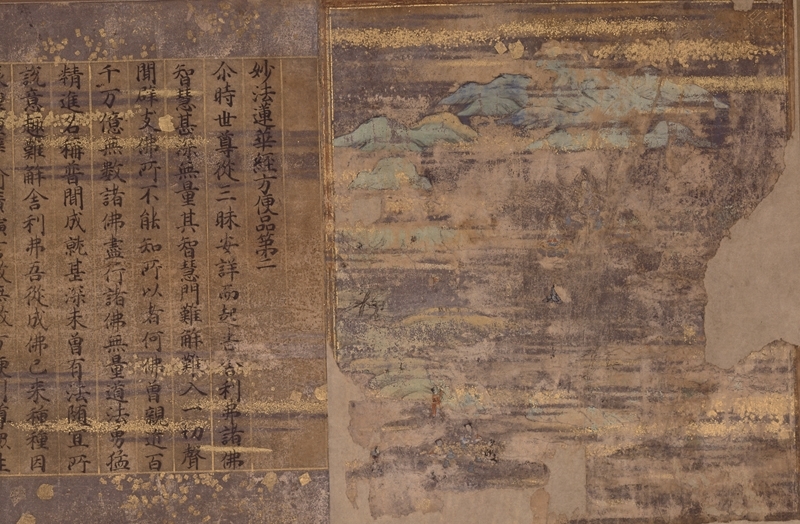 妙法蓮華經方便品第二
尒時世尊從三昧安詳而起告舎利弗諸佛
智慧甚深無量其智慧門難解難入一切聲
聞辟支佛所不能知所以者何佛曾親近百
千万億無數諸佛盡行諸佛無量道法勇猛
精進名稱普聞成就甚深未曾有法随冝所
説意趣難解舎利弗吾從成佛已来種種因